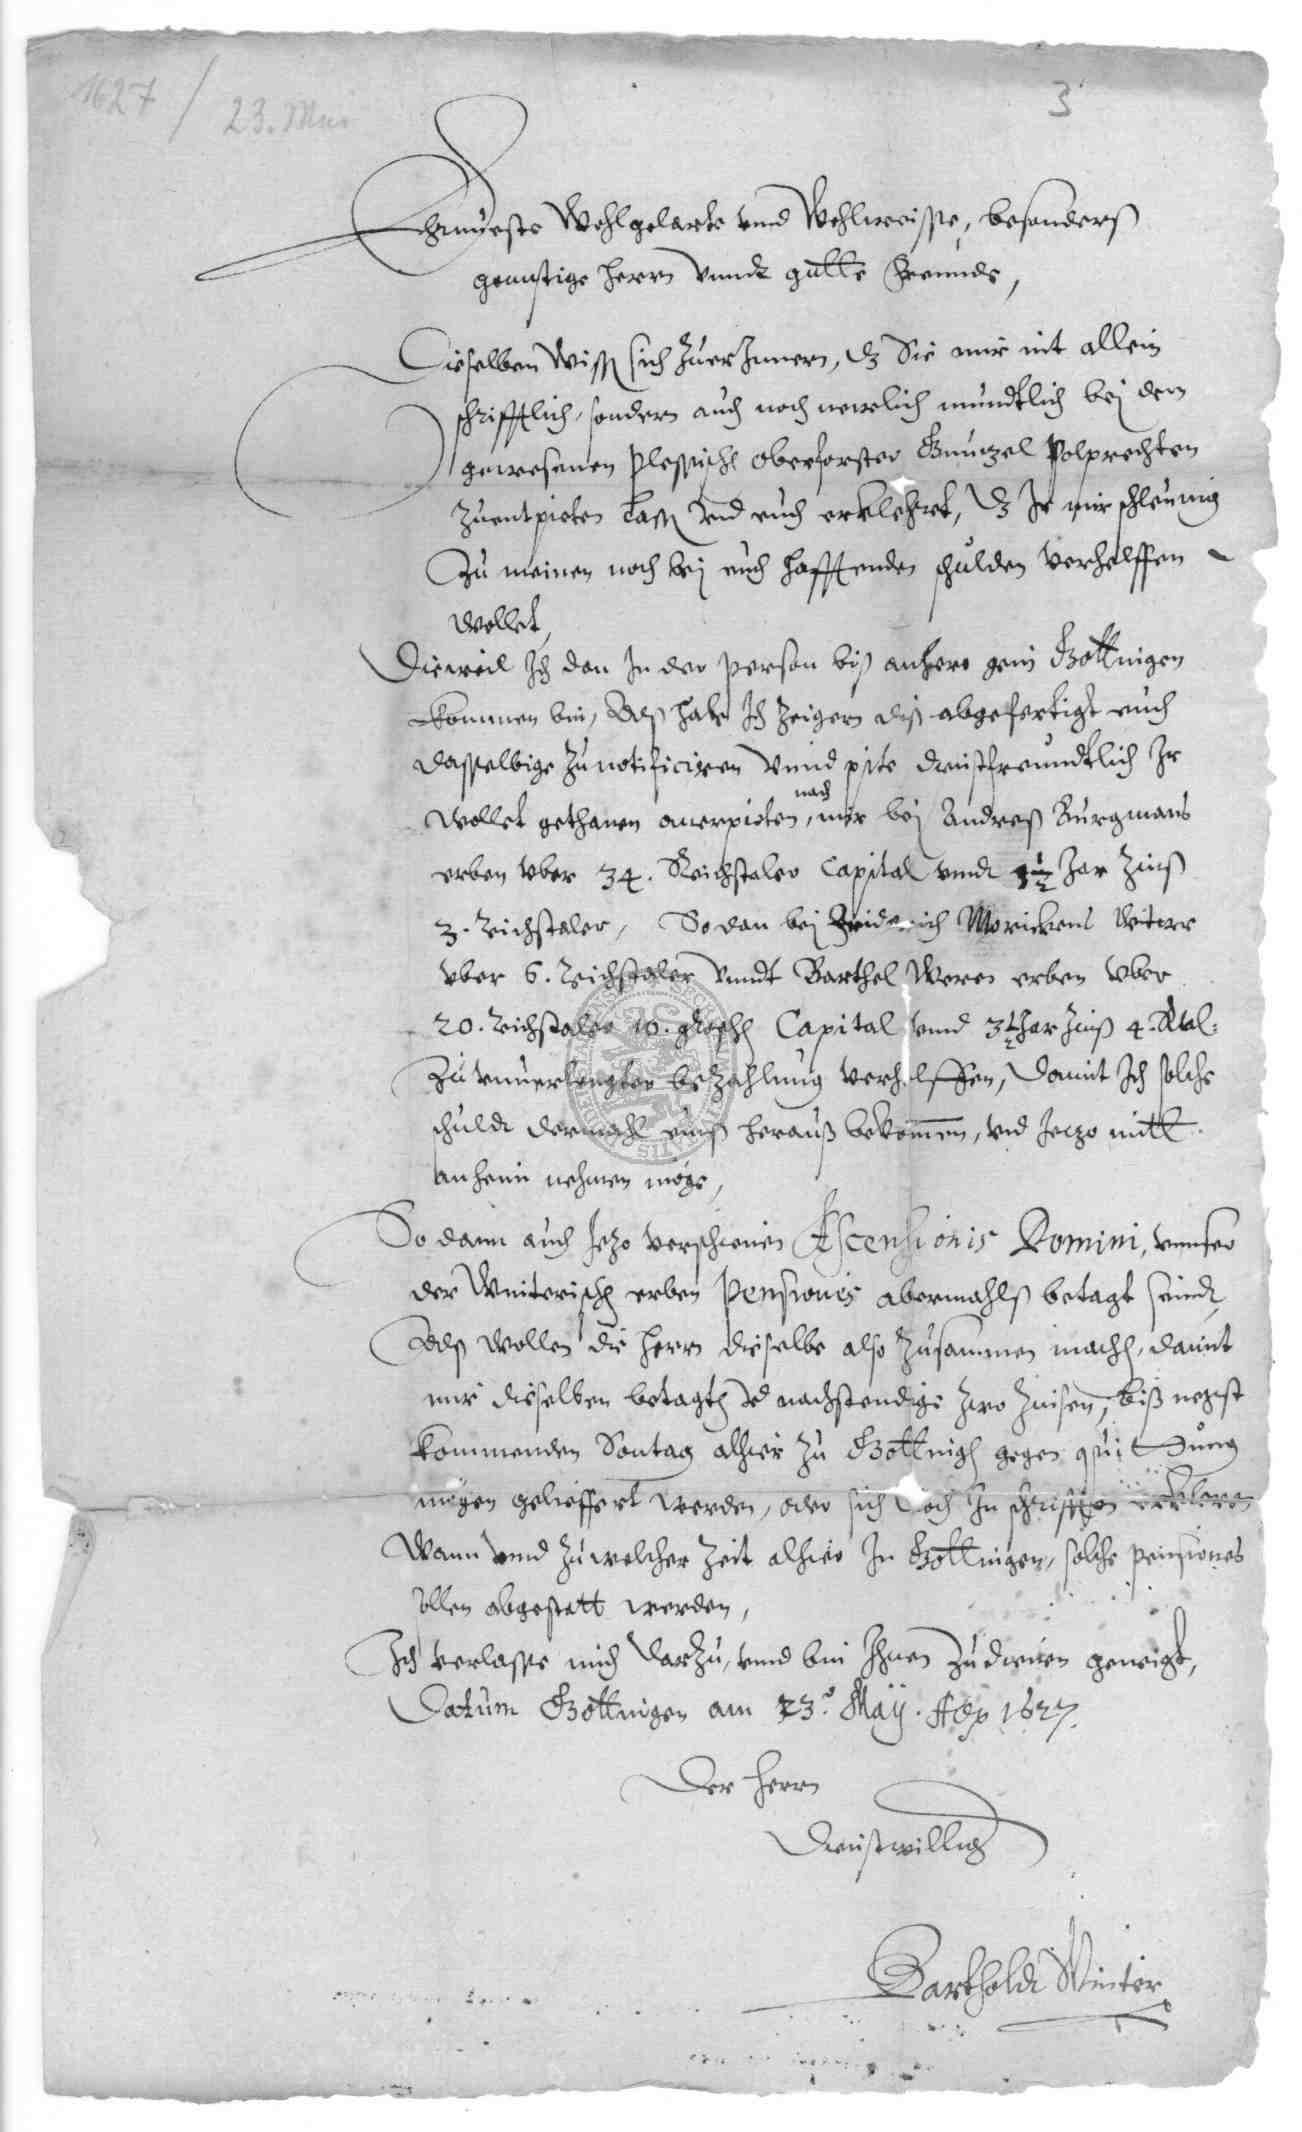 1627 / 23. Mai
3
Ehrnueste Wohlgelarte vnd Wohlweisse, besonders
gounstige Herrn vnndt gutte Freunde,
Dieselben wissen sich zuer Innern, dz Sie mir nit allein
schrifftlich, sondern auch noch newlich mundtlich bej dem
gewesenen Plessischen oberforster Gunzel Volprechten
zuentpieten lassen vnd euch erklehret, dz Ir mir schleunig
zu meinen noch bej euch hafftenden schulden verhelffen
wollet,
Dieweil Ich dan In der person biß anhero gein Gottingen
kommen bin, Alß habe Ich Zeigern diß abgefertigt euch
dasselbige zu notificiren vnnd pitte dienstfreundtlich Ir
wollet gethanen anerpieten nach, mir bej Andreß Burgmans
erben vber 34. Reichstaler Capital vnndt 1½ Jar Zinß
3. reichstaler, So dan bej Friderich Morickens Witwe
vber 6. reichstaler vnndt Barthel Weren erben vber
20. reichstaler 10. groschen Capital vnnd 3½ Jar Zinß 4. Rtal:
zu vnuerlengter bezahlung verhelffen, Damit Ich solche
schuldt dermahl einß herauß bekommen, vnd Jeczo mitt
anheim nehmen möge,
So dann auch Jetzo verschienen Ascensionis Domini, vnnser
der Winterischen erben Pensiones abermahlß betagt seindt,
Alß wollen die Herrn dieselbe also zusammen machen, damit
mir dieselben betagten vnd nachstendige zwo Zinsen, biß negst
kommenden Sontag alhier zu Gottingen gegen quittung
mögen gelieffert werden, oder sich doch In schrifften erkleren
Wann vnnd zu welcher Zeit alhier In Gottingen, solche pensiones
sollen abgestatt werden,
Ich verlasse mich darzu, vnnd bin Ihnen zu dienen geneigt,
Datum Gottingen am 23. Maij. Ao 1627.
Der Herrn
Dienstwilliger
Barthold Winter